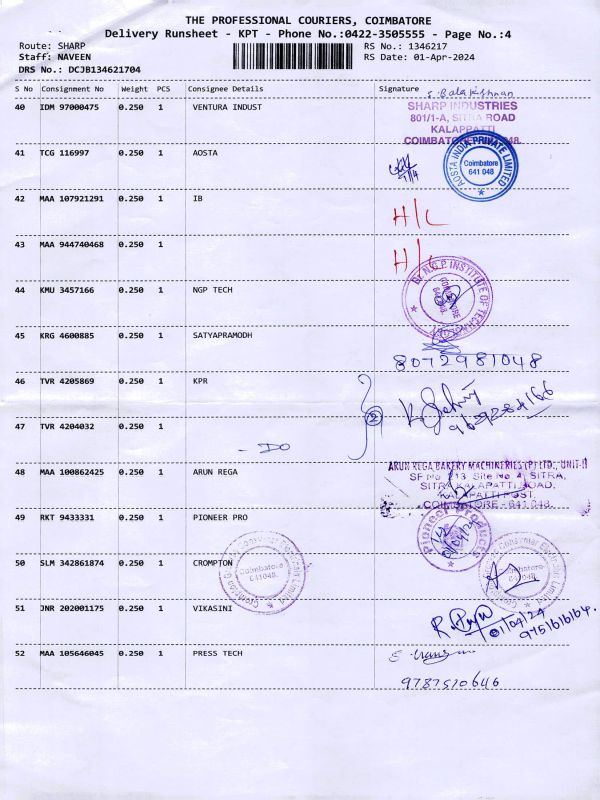 THE PROFESSIONAL COURIERS, COIMBATORE
Delivery Runsheet - KPT - Phone No.:0422-3505555 - Page No.:4
Route: SHARP
RS No.: 1346217
Staff: NAVEEN
RS Date: 01-Apr-2024
DRS No.: DCJB134621704
S No Consignment No Weight PCS Consignee Details Signature
40 IDM 97000475 0.250 1 VENTURA INDUST
SHARP INDUSTRIES
801/1-A, SITRA ROAD
KALAPPATTI
COIMBATORE
41 TCG 116997 0.250 1 AOSTA
AOSTA INDIA PRIVATE LIMITED
Coimbatore
641 048
42 MAA 107921291 0.250 1 IB
H/L
43 MAA 944740468 0.250 1
H/L
44 KMU 3457166 0.250 1 NGP TECH
Dr. N.G.P. INSTITUTE OF TECHNOLOGY
COIMBATORE
641 048.
45 KRG 4600885 0.250 1 SATYAPRAMODH
8072981048
46 TVR 4205869 0.250 1 KPR
2
47 TVR 4204032 0.250 1
- DO
48 MAA 100862425 0.250 1 ARUN REGA
ARUN REGA BAKERY MACHINERIES (P) LTD., UNIT-II
SF No 613 Site No 4 SITRA,
SITRA KALAPATTI ROAD,
KALAPATTI POST,
COIMBATORE - 641 048.
49 RKT 9433331 0.250 1 PIONEER PRO
Pioneer Products
50 SLM 342861874 0.250 1 CROMPTON
Crompton Greaves Consumer Electricals Limited
Coimbatore
641048.
Consumer
Coimbatore
641048.
51 JNR 202001175 0.250 1 VIKASINI
01/04/24
9751616164.
52 MAA 105646045 0.250 1 PRESS TECH
9787510646